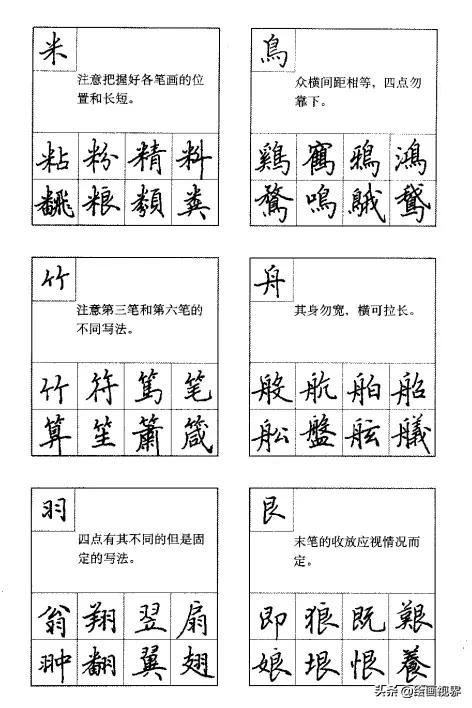 米
注意把握好各笔画的位
置和长短。
粘 粉 精 料
飜 粮 類 粪
鳥
众横间距相等，四点勿
靠下。
鷄 鴉 鴻
鳴
竹
注意第三笔和第六笔的
不同写法。
竹 符 篤 笔
算 笙 簫 箴
舟
其身勿宽，横可拉长。
般 航 舶 船
舩 盤 舷 艤
羽
四点有其不同的但是固
定的写法。
翁 翔 翌 扇
翀 翻 翼 翅
艮
末笔的收放应视情况而
定。
即 狼 既 艱
娘 垠 恨 養
头条@绘画视界